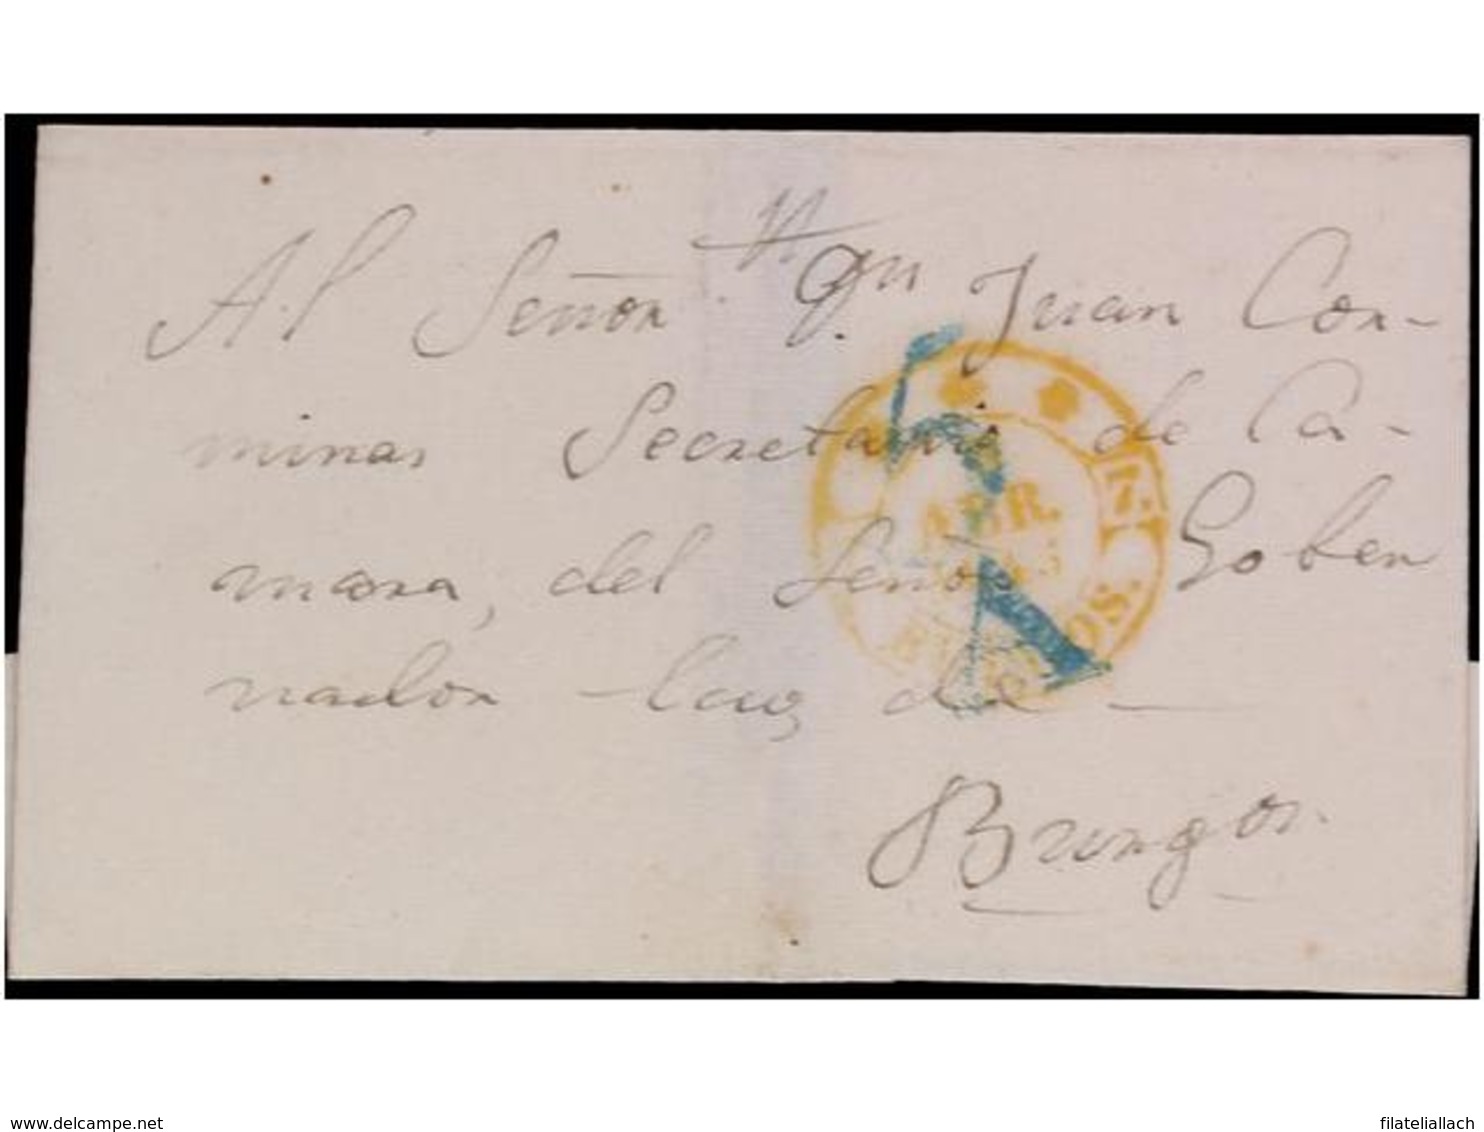 Al Señor Dn Juan Con-
minas Secretario de Ca-
mara, del Señor Gober
nador de
Burgos.
ABR.
7.
BURGOS.
www.delcampe.net
filateliallach